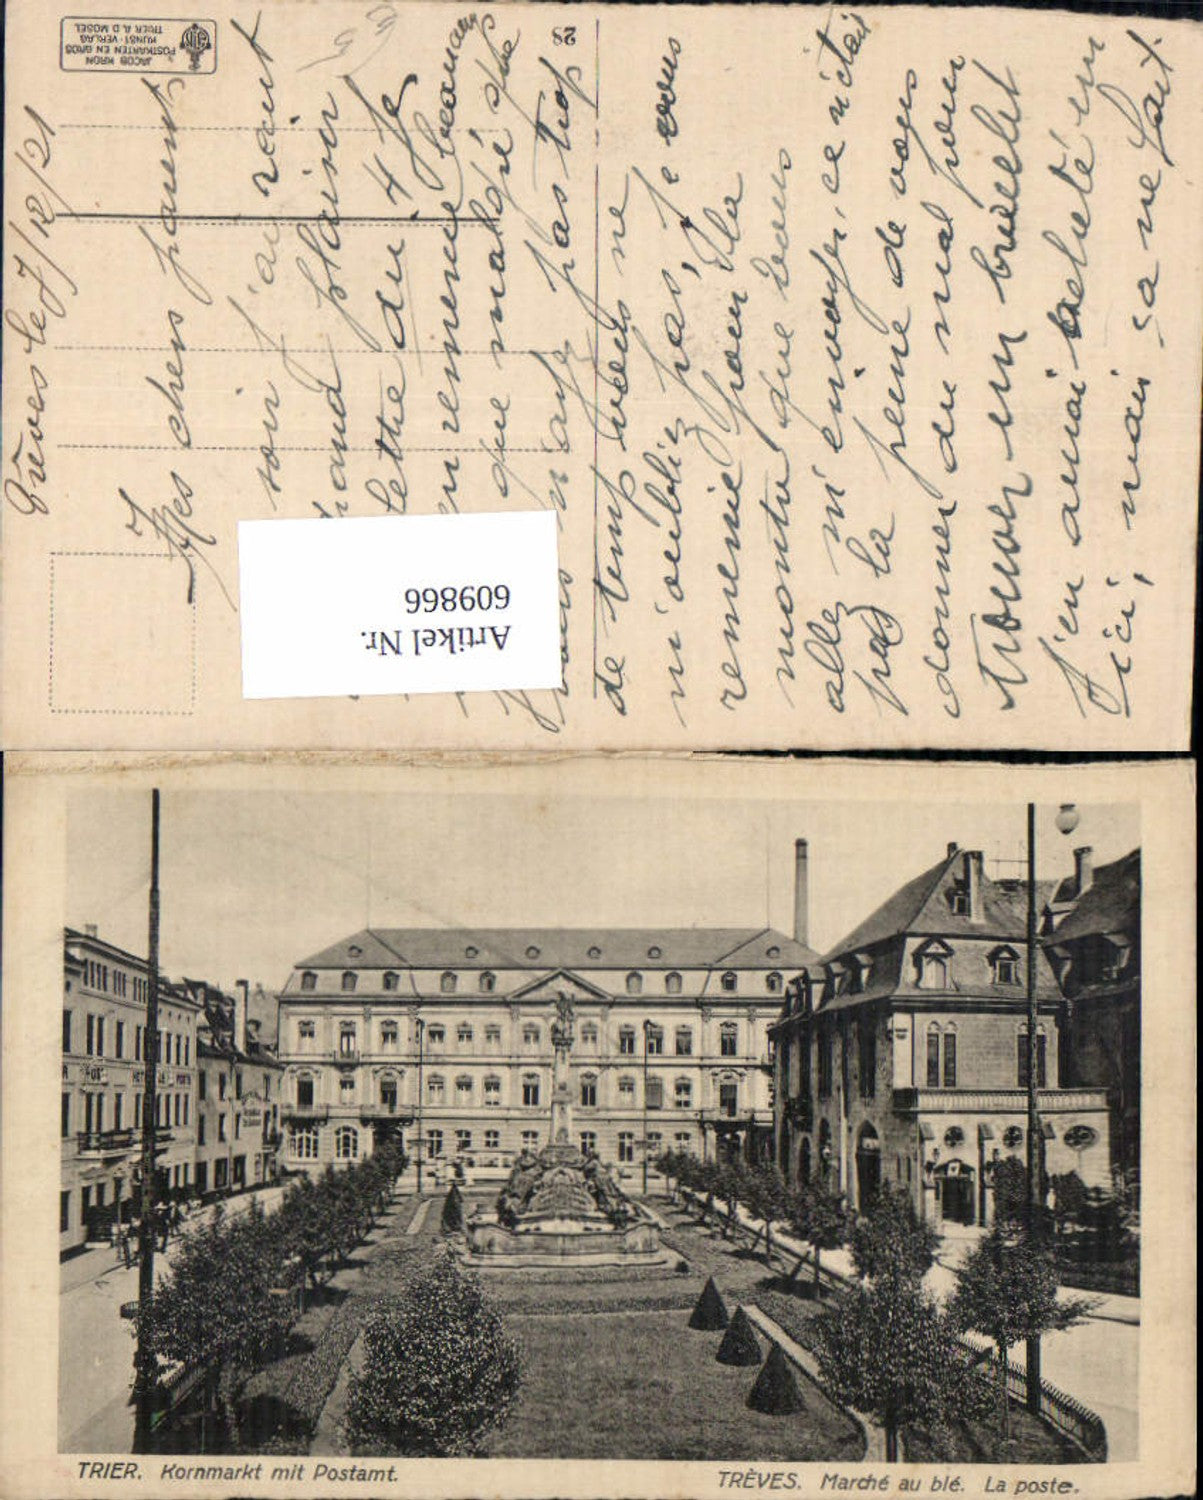 JACOB KRON
POSTKARTEN EN GROS
KUNST-VERLAG
TRIER A. D. MOSEL
28
Trèves le 7/12/21
Mes chers parents
soir j'ai reçut
grand plaisir
lettre du 4 Je
en remercie beaucoup
que malgré que
vous n'avez pas trop
de temp vous ne
m'oubliez pas, je vous
remercie pour la
montre que vous
allez m'envoyer, ce n'était
pas la peine de vous
donner du mal pour
trouver un bracelet
J'en aurai acheté un
ici, mais ça ne fait.
Artikel Nr.
609866
POST
TRIER. Kornmarkt mit Postamt.
TRÈVES. Marché au blé. La poste.